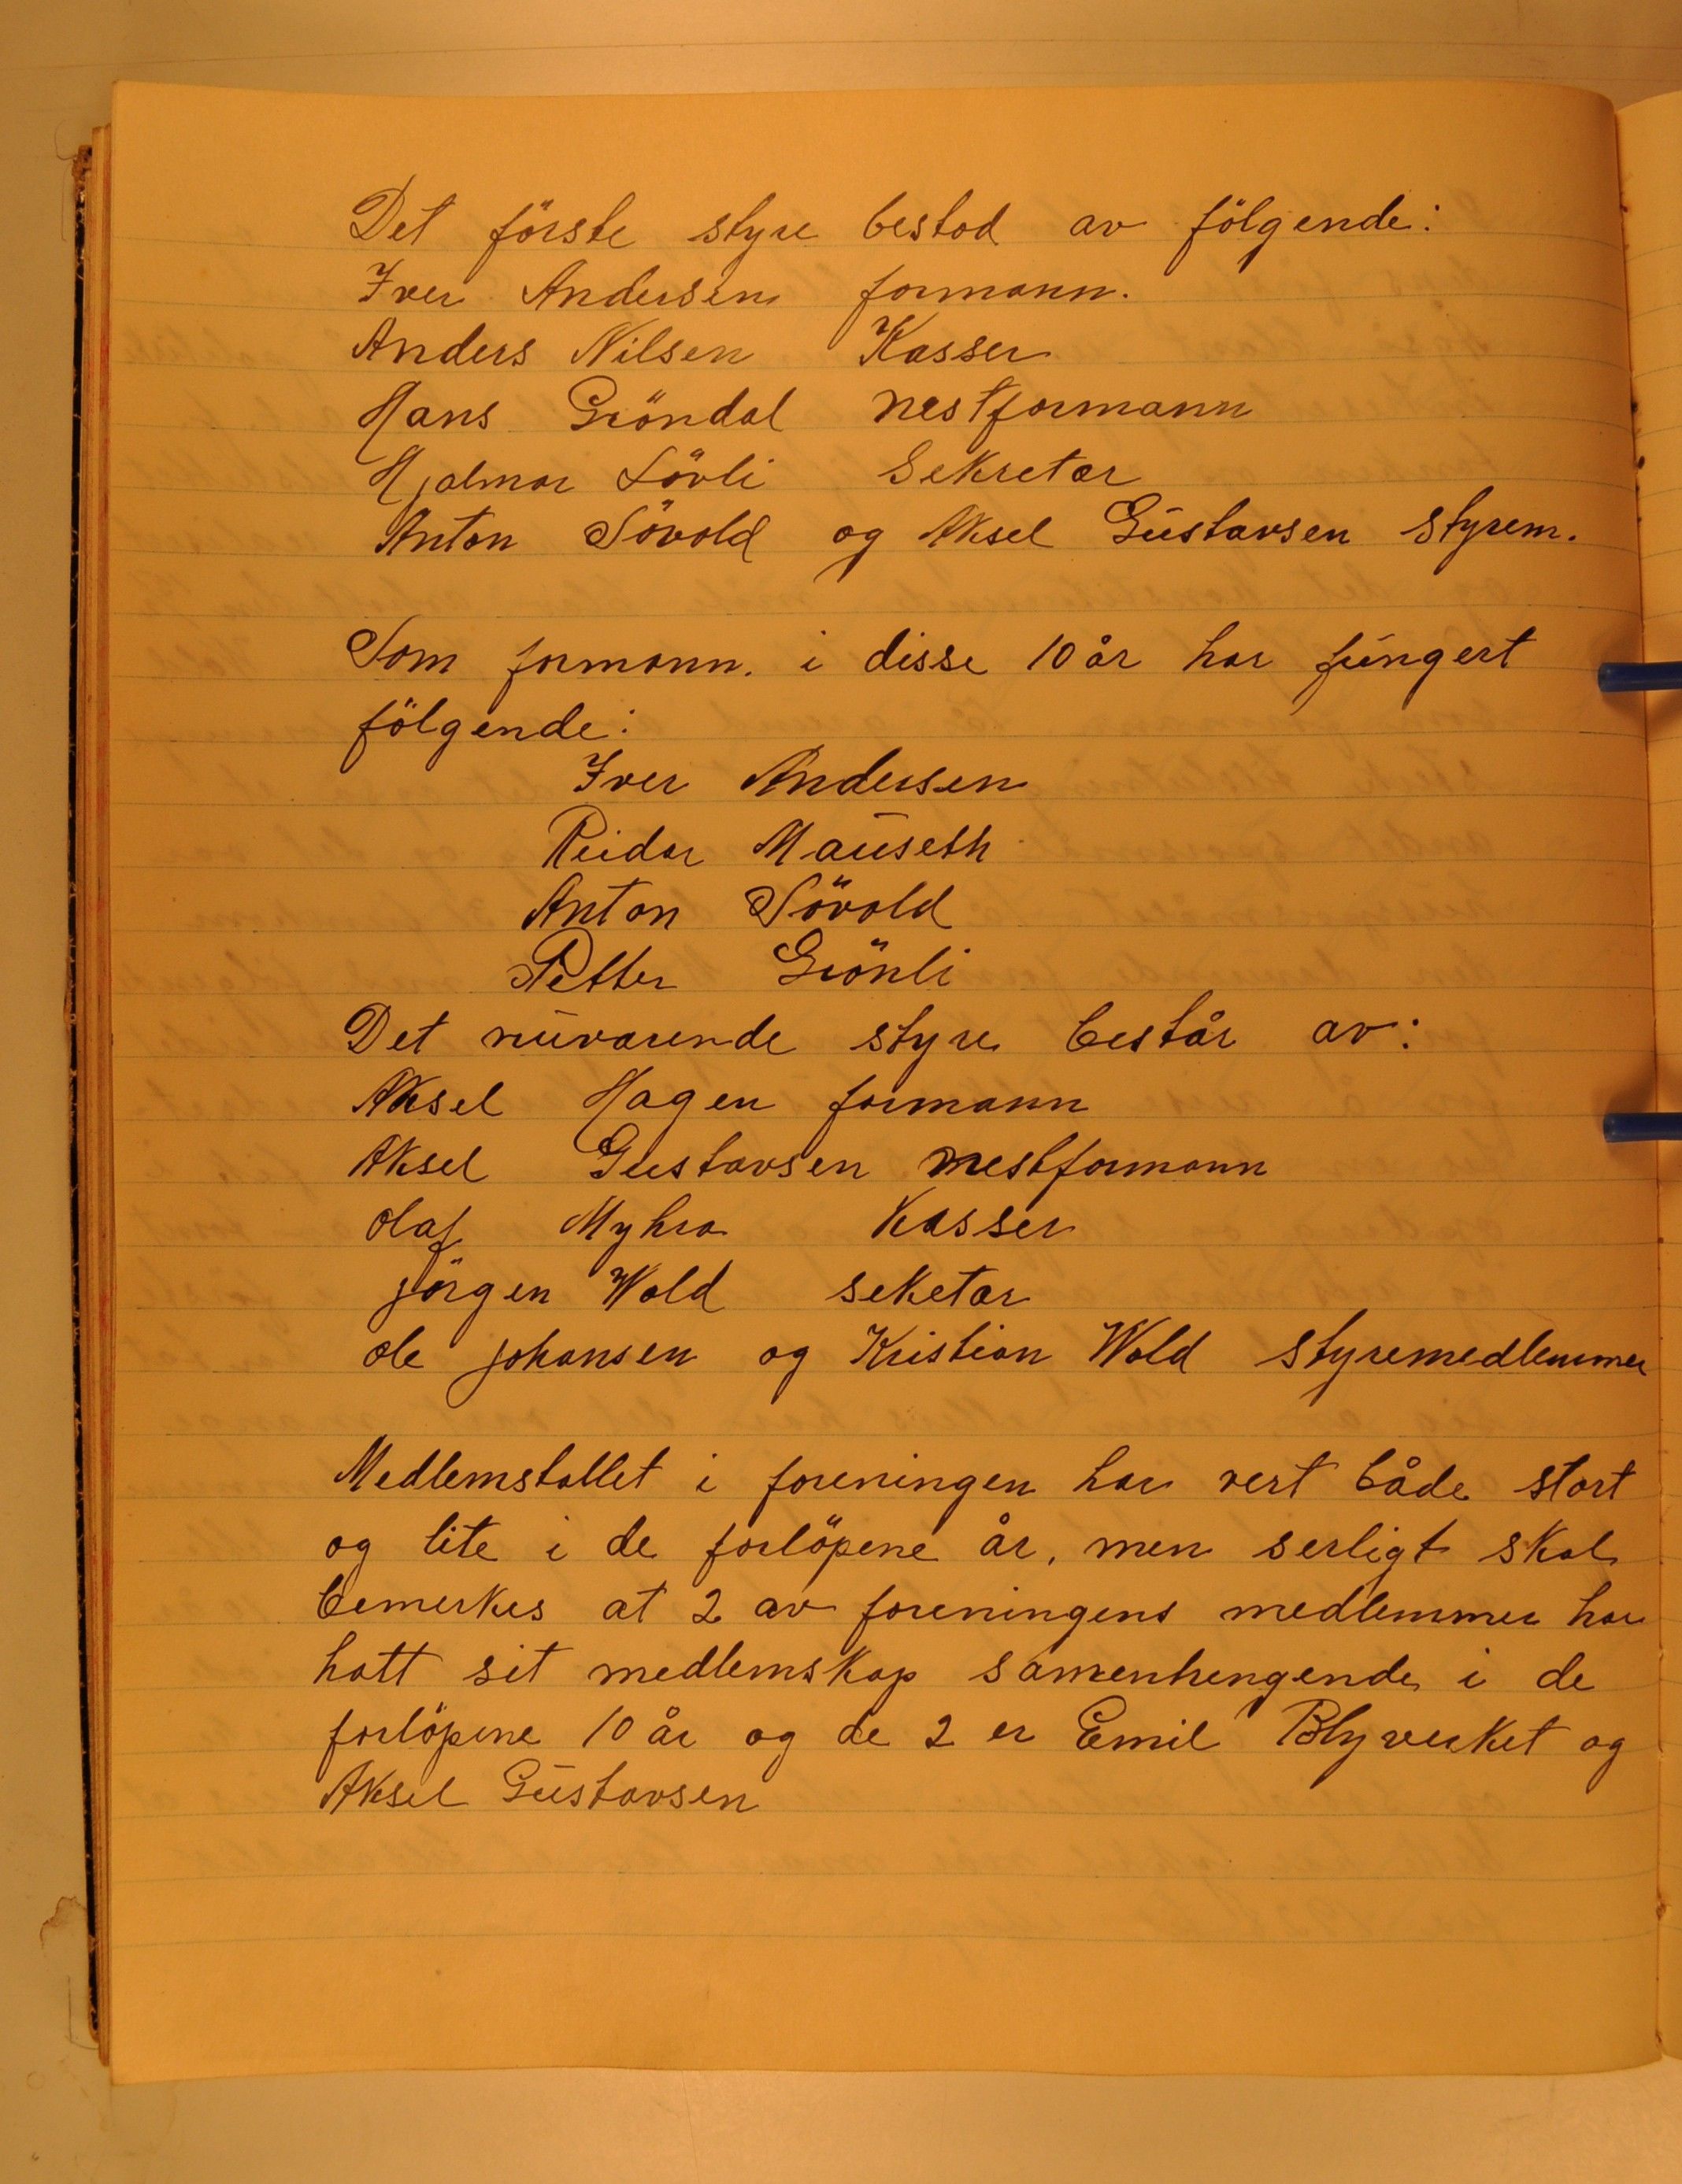 Det förste styre bestod av fölgende:
Iver Andersen formann.
Anders Nilsen Kasser
Hans Gröndal nestformann
Hjalmar Lövli Sekretær
Anton Sövold og Aksel Gustavsen styrem.
Som formann. i disse 10 år har fungert
fölgende:
Iver Andersen
Reidar Mauseth
Anton Sövold
Petter Grönli
Det nuværende styre består av:
Aksel Hagen formann
Aksel Gustavsen nestformann
Olaf Myhra Kasser
Jörgen Wold seketær
Ole Johansen og Kristian Wold styremedlemmer
Medlemstallet i foreningen har vert både stort
og lite i de forlöpene år, men serligt skal
bemerkes at 2 av foreningens medlemmer har
hatt sit medlemskap samenhengende i de
forlöpene 10 år og de 2 er Emil Blyverket og
Aksel Gustavsen